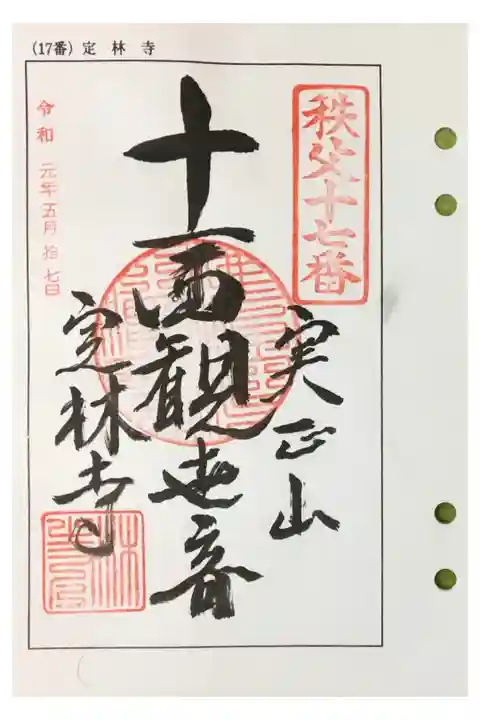 (17番) 定林寺
秩父十七番
実正山
十一面観世音
定林寺
令和元年五月拾七日